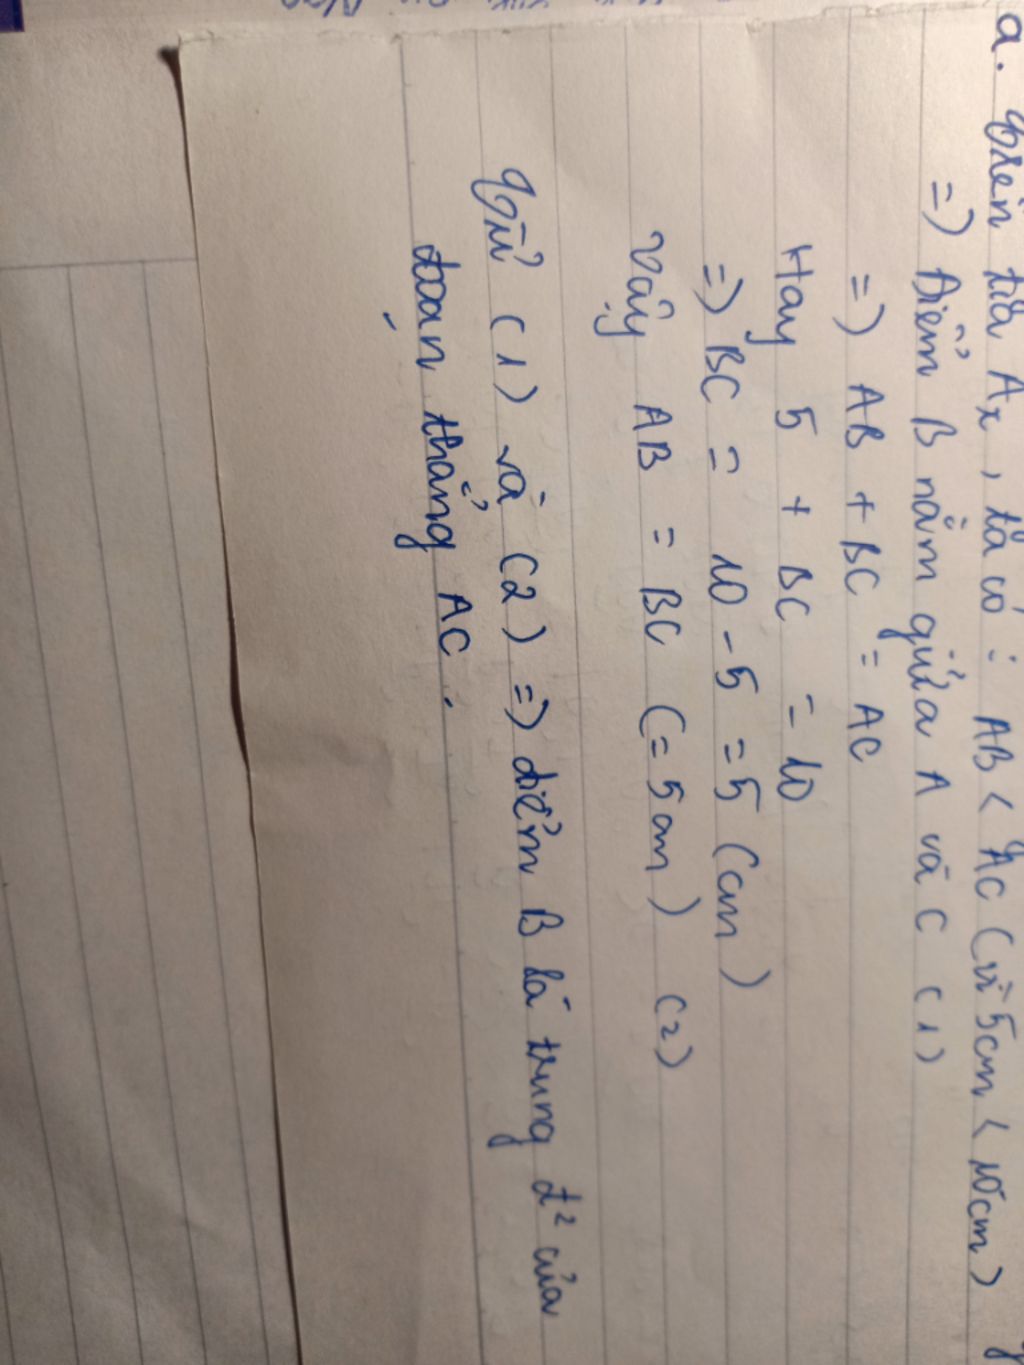 a. Trên tia Ax, ta có : AB < AC (vì 5cm < 10cm)
=) Điểm B nằm giữa A và C (1)
=) AB + BC = AC
Hay 5 + BC = 10
=) BC = 10 - 5 = 5 (cm)
Vậy AB = BC (= 5cm) (2)
Từ (1) và (2) =) điểm B là trung đ² của
đoạn thẳng AC.